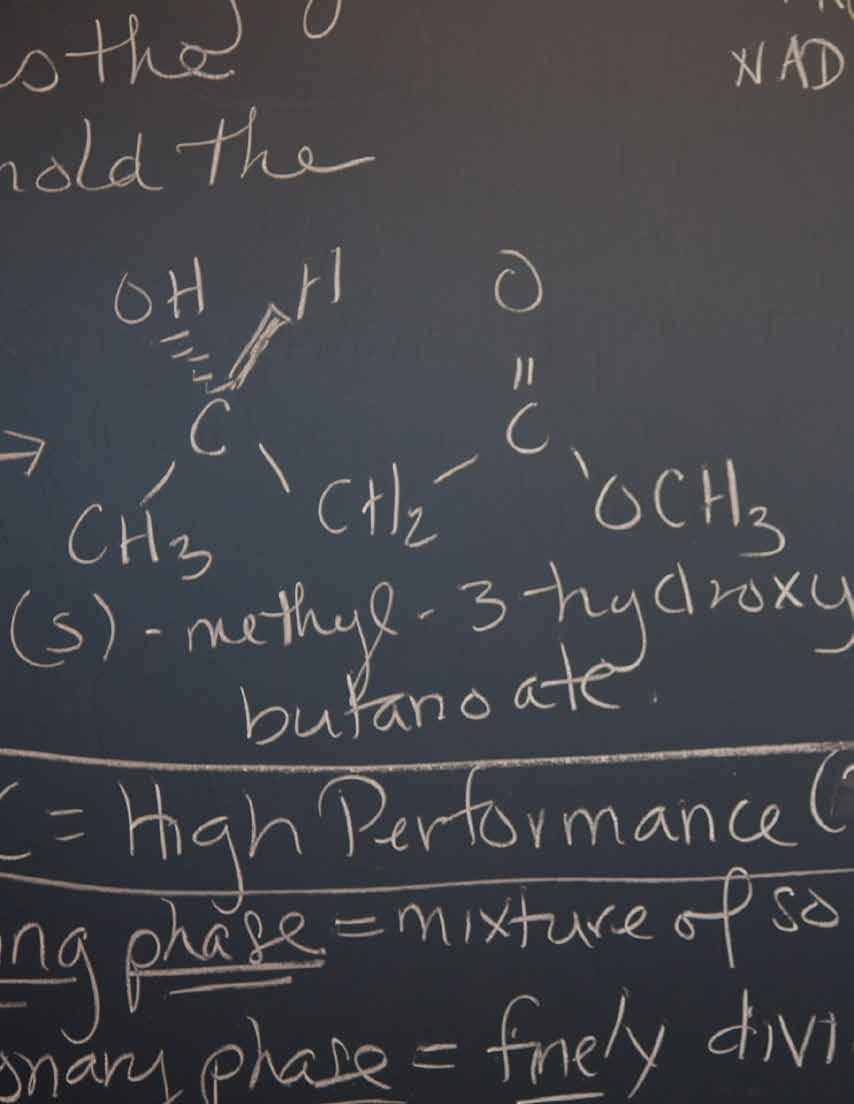 the
NAD
hold the
OH H O
||
C C
CH3 CH2 OCH3
(s)-methyl-3-hydroxy
butanoate.
= High Performance (
phase = mixture of so
phase = finely divi